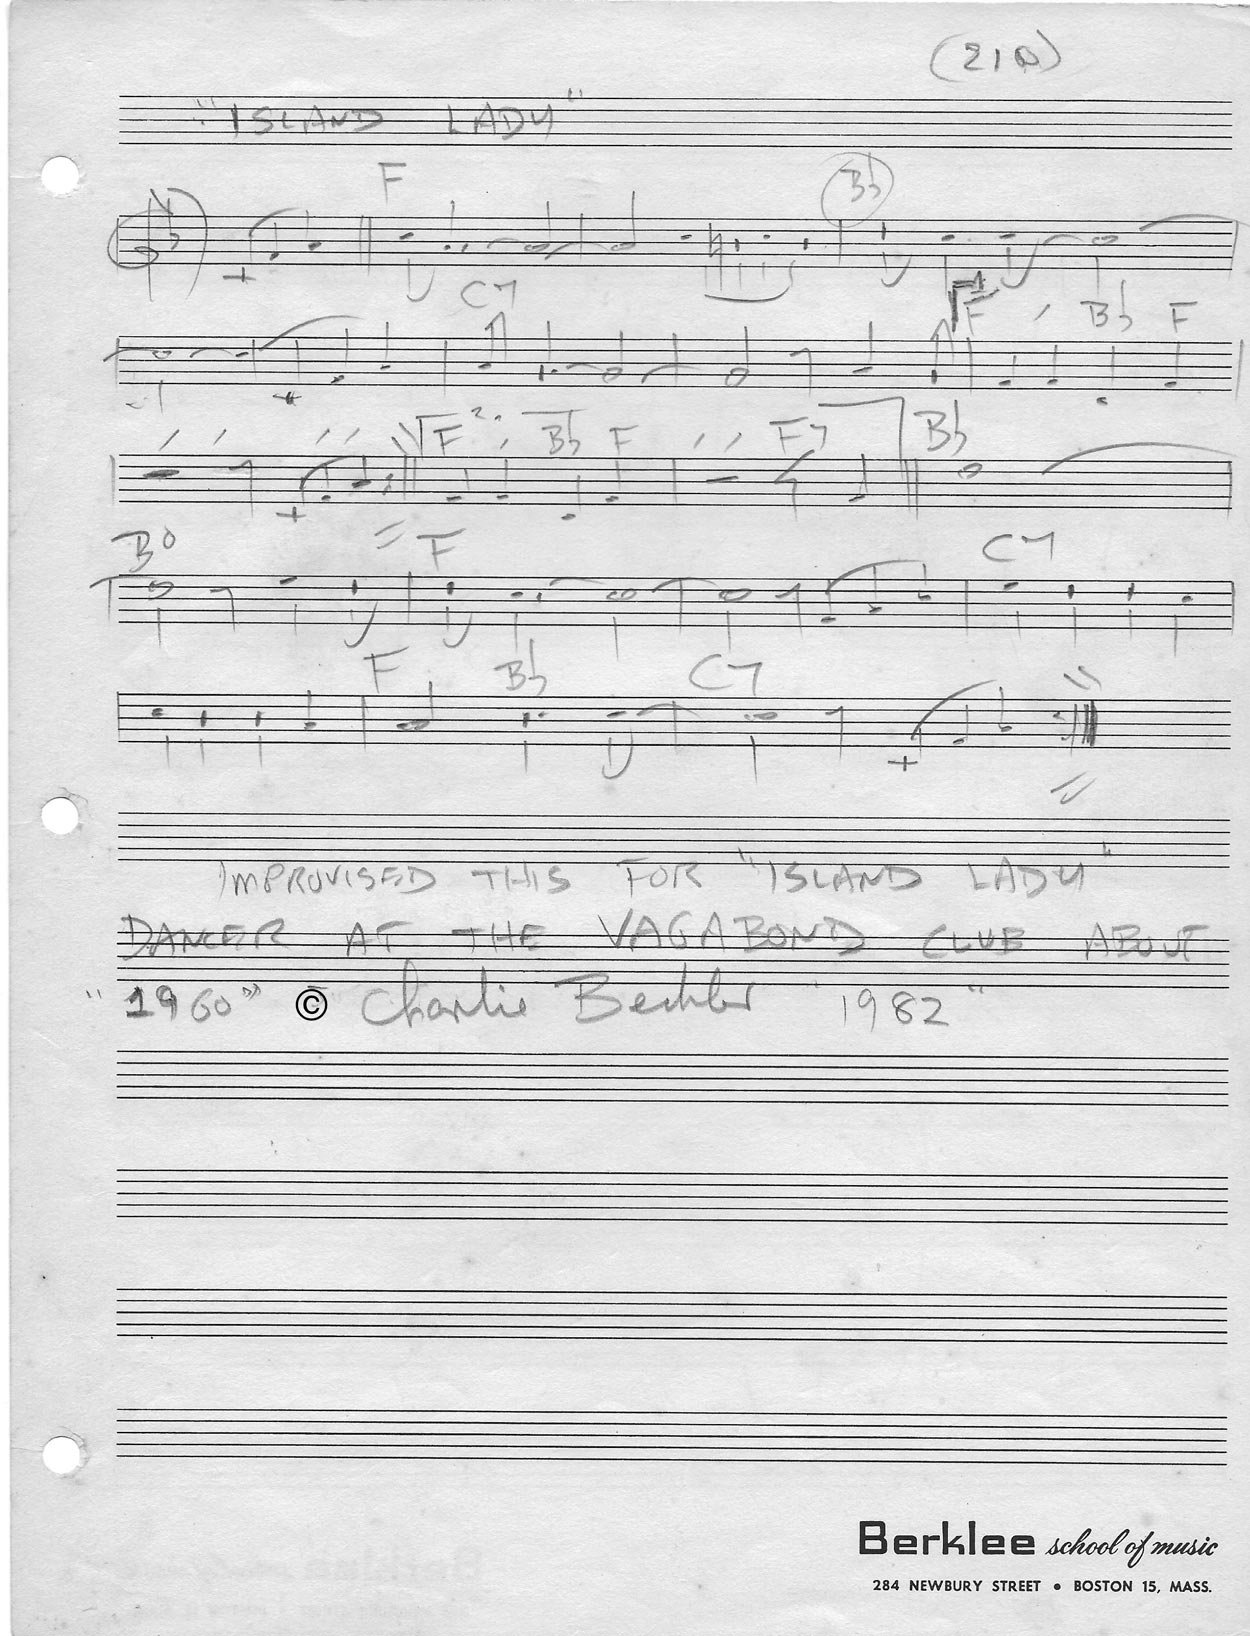 (21A)
"ISLAND LADY"
F Bb
C7 F Bb F
F 2. Bb F F7 Bb
B° F C7
F Bb C7
IMPROVISED THIS FOR "ISLAND LADY"
DANCER AT THE VAGABOND CLUB ABOUT
"1960" © Charlie Bechler "1982"
Berklee school of music
284 NEWBURY STREET • BOSTON 15, MASS.